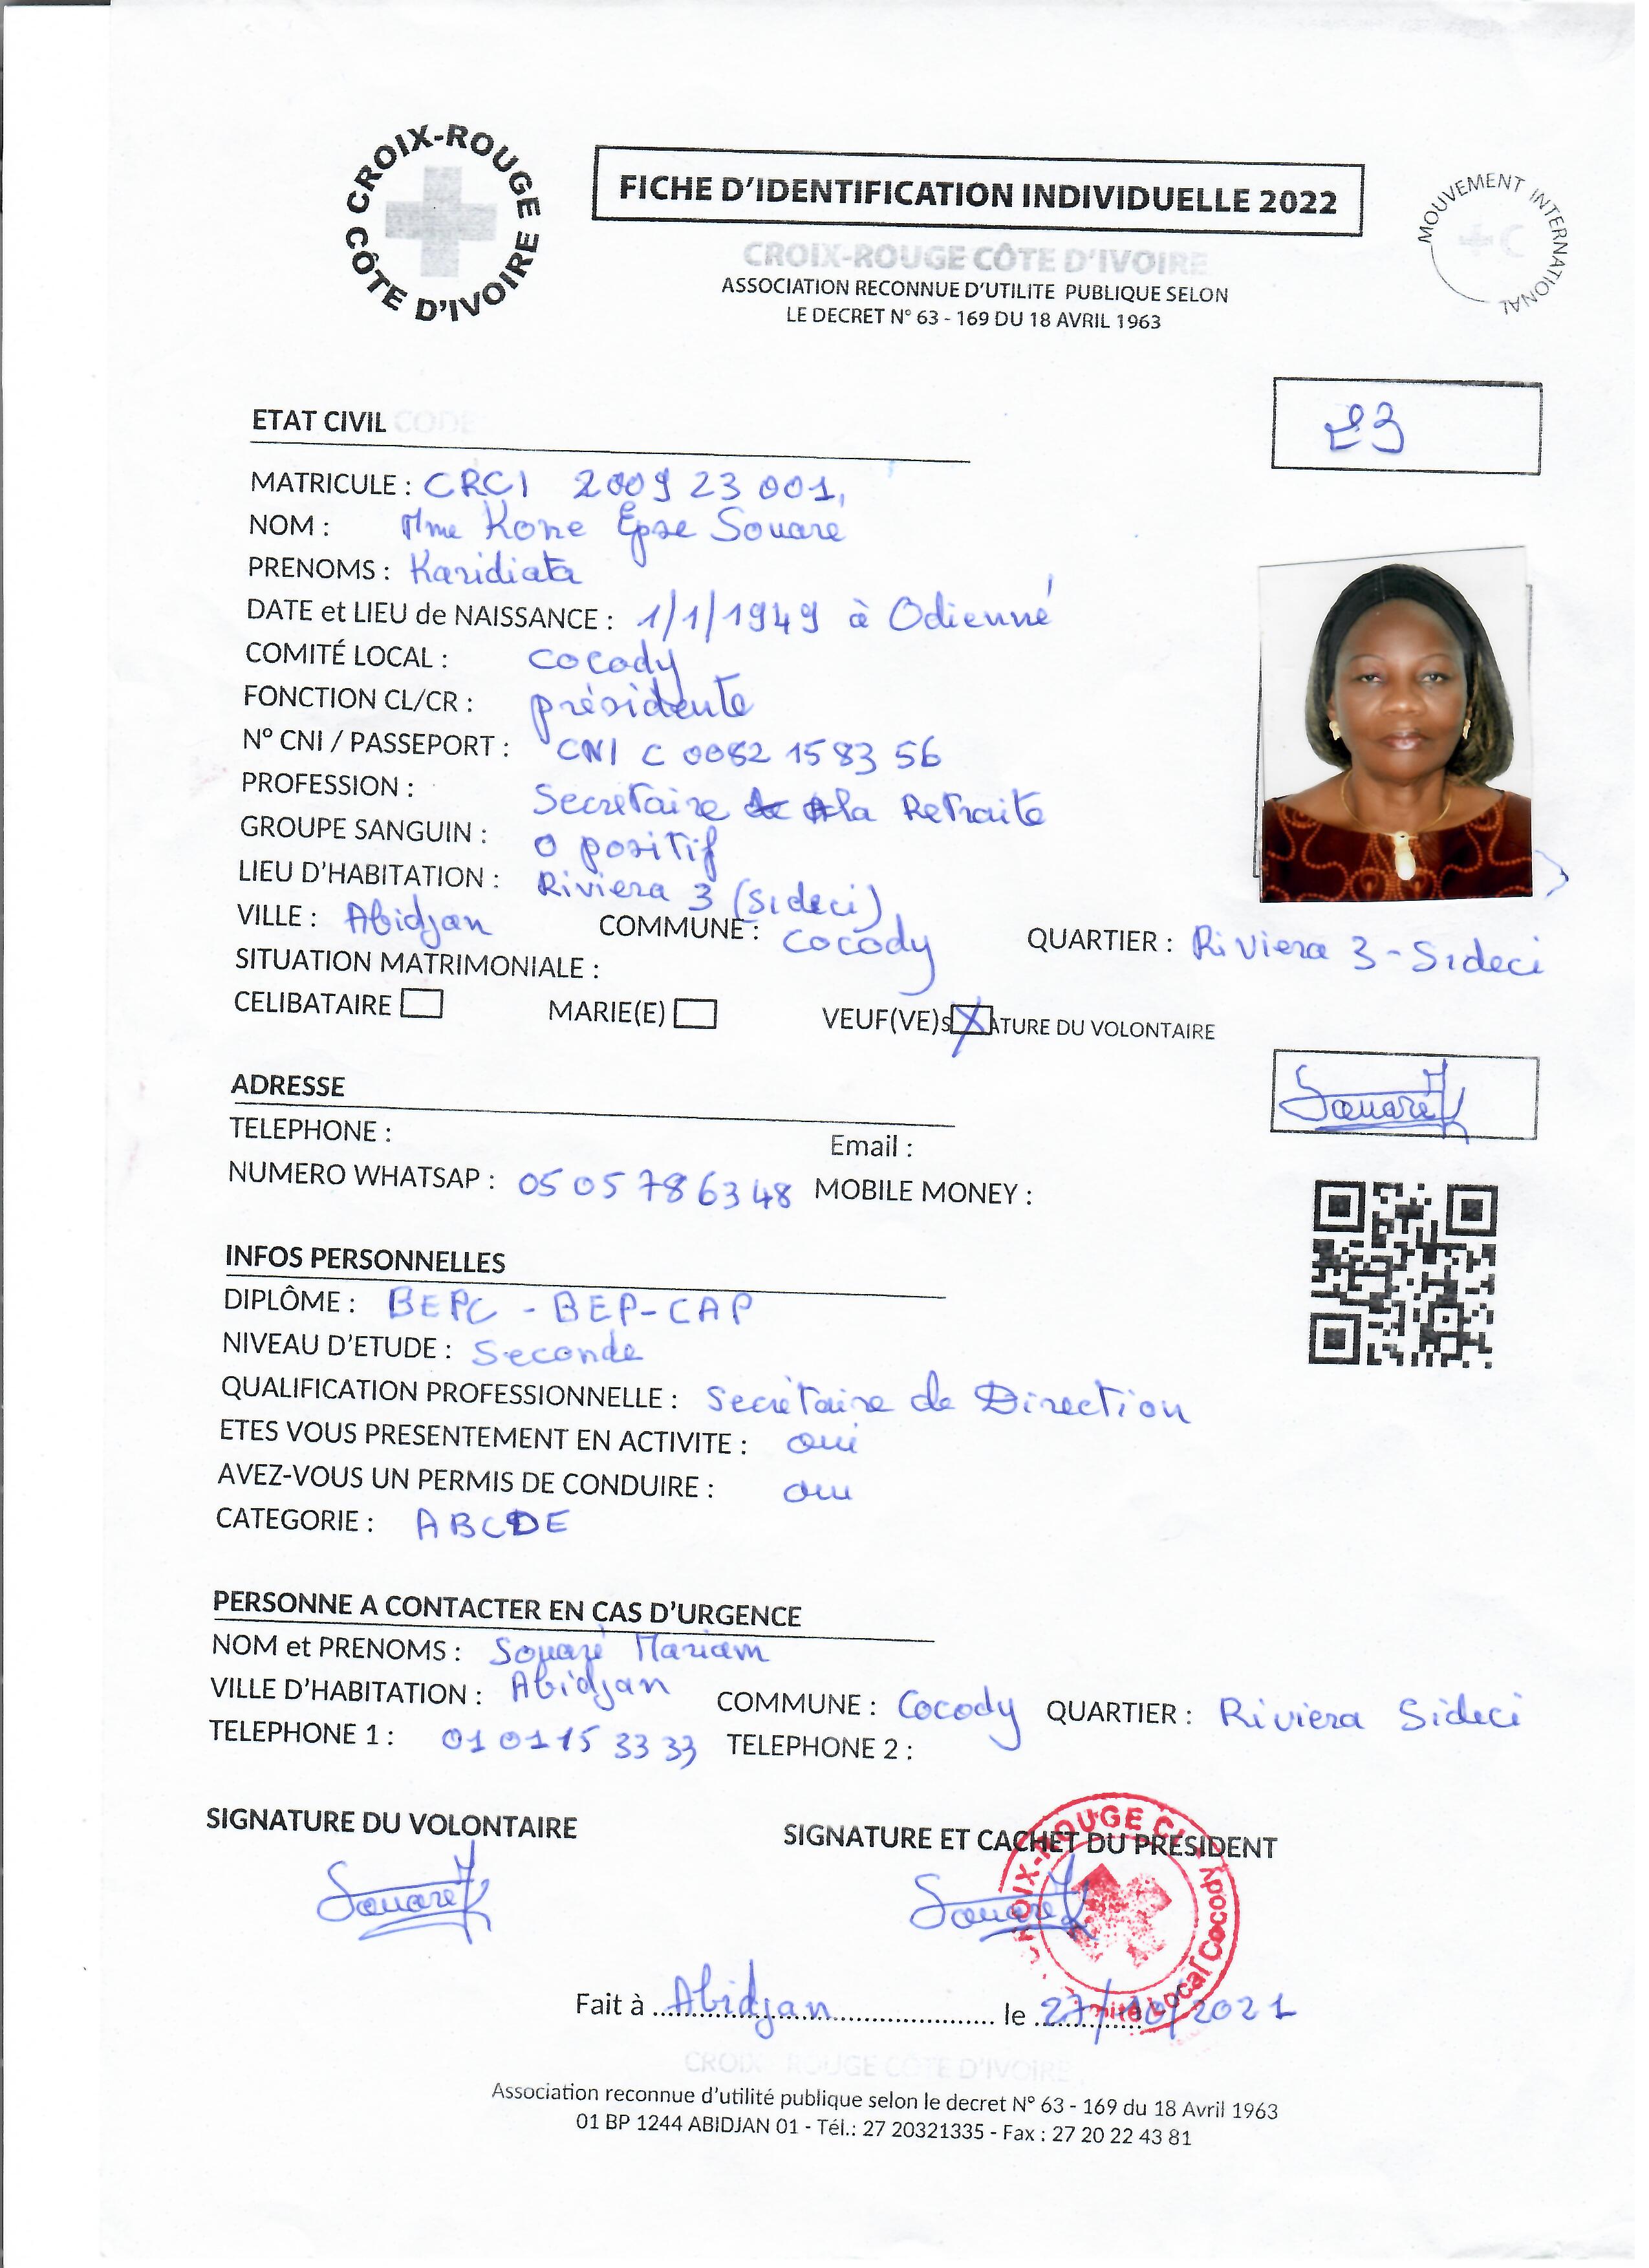 CROIX-ROUGE CÔTE D'IVOIRE
FICHE D'IDENTIFICATION INDIVIDUELLE 2022
MOUVEMENT INTERNATIONAL
CROIX-ROUGE CÔTE D'IVOIRE
ASSOCIATION RECONNUE D'UTILITE PUBLIQUE SELON
LE DECRET N° 63 - 169 DU 18 AVRIL 1963
ETAT CIVIL CODE
23
MATRICULE : CRCI 2009 23 001,
NOM : Mme Kone Epse Souaré
PRENOMS : Karidiata
DATE et LIEU de NAISSANCE : 1/1/1949 à Odienné
COMITÉ LOCAL : Cocody
FONCTION CL/CR : présidente
N° CNI / PASSEPORT : CNI C 0082 1583 56
PROFESSION : Secretaire à la Retraite
GROUPE SANGUIN : O positif
LIEU D'HABITATION : Riviera 3 (Sideci)
VILLE : Abidjan COMMUNE : Cocody QUARTIER : Riviera 3-Sideci
SITUATION MATRIMONIALE :
CELIBATAIRE MARIE(E) VEUF(VE) X ATURE DU VOLONTAIRE
Souaré
ADRESSE
TELEPHONE : Email :
NUMERO WHATSAP : 05 05 78 63 48 MOBILE MONEY :
INFOS PERSONNELLES
DIPLÔME : BEPC - BEP-CAP
NIVEAU D'ETUDE : Seconde
QUALIFICATION PROFESSIONNELLE : Secrétaire de Direction
ETES VOUS PRESENTEMENT EN ACTIVITE : oui
AVEZ-VOUS UN PERMIS DE CONDUIRE : oui
CATEGORIE : ABCDE
PERSONNE A CONTACTER EN CAS D'URGENCE
NOM et PRENOMS : Souaré Mariam
VILLE D'HABITATION : Abidjan COMMUNE : Cocody QUARTIER : Riviera Sideci
TELEPHONE 1 : 01 01 15 33 33 TELEPHONE 2 :
SIGNATURE DU VOLONTAIRE SIGNATURE ET CACHET DU PRÉSIDENT
Souaré Souaré
CROIX-ROUGE CI Local Cocody
Fait à Abidjan le 27/10/2021
CROIX - ROUGE CÔTE D'IVOIRE
Association reconnue d'utilité publique selon le decret N° 63 - 169 du 18 Avril 1963
01 BP 1244 ABIDJAN 01 - Tél.: 27 20321335 - Fax : 27 20 22 43 81